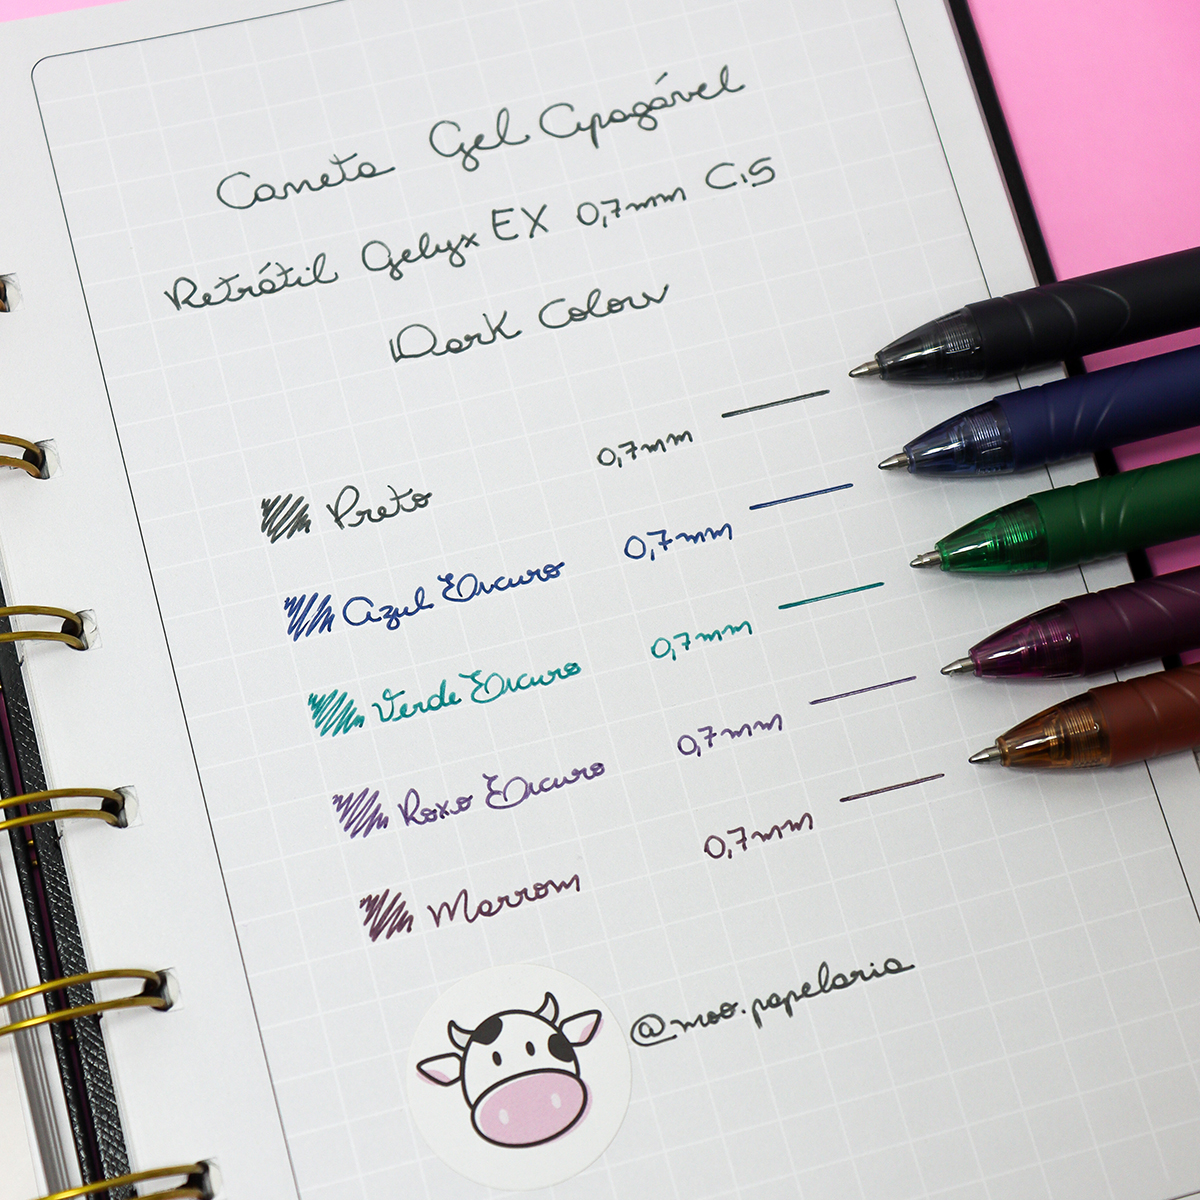 Caneta Gel Apagável
Retrátil Gelyx EX 0,7mm CiS
Dark Colors
Preto 0,7mm
Azul Escuro 0,7mm
Verde Escuro 0,7mm
Roxo Escuro 0,7mm
Marrom 0,7mm
@moo.papelaria